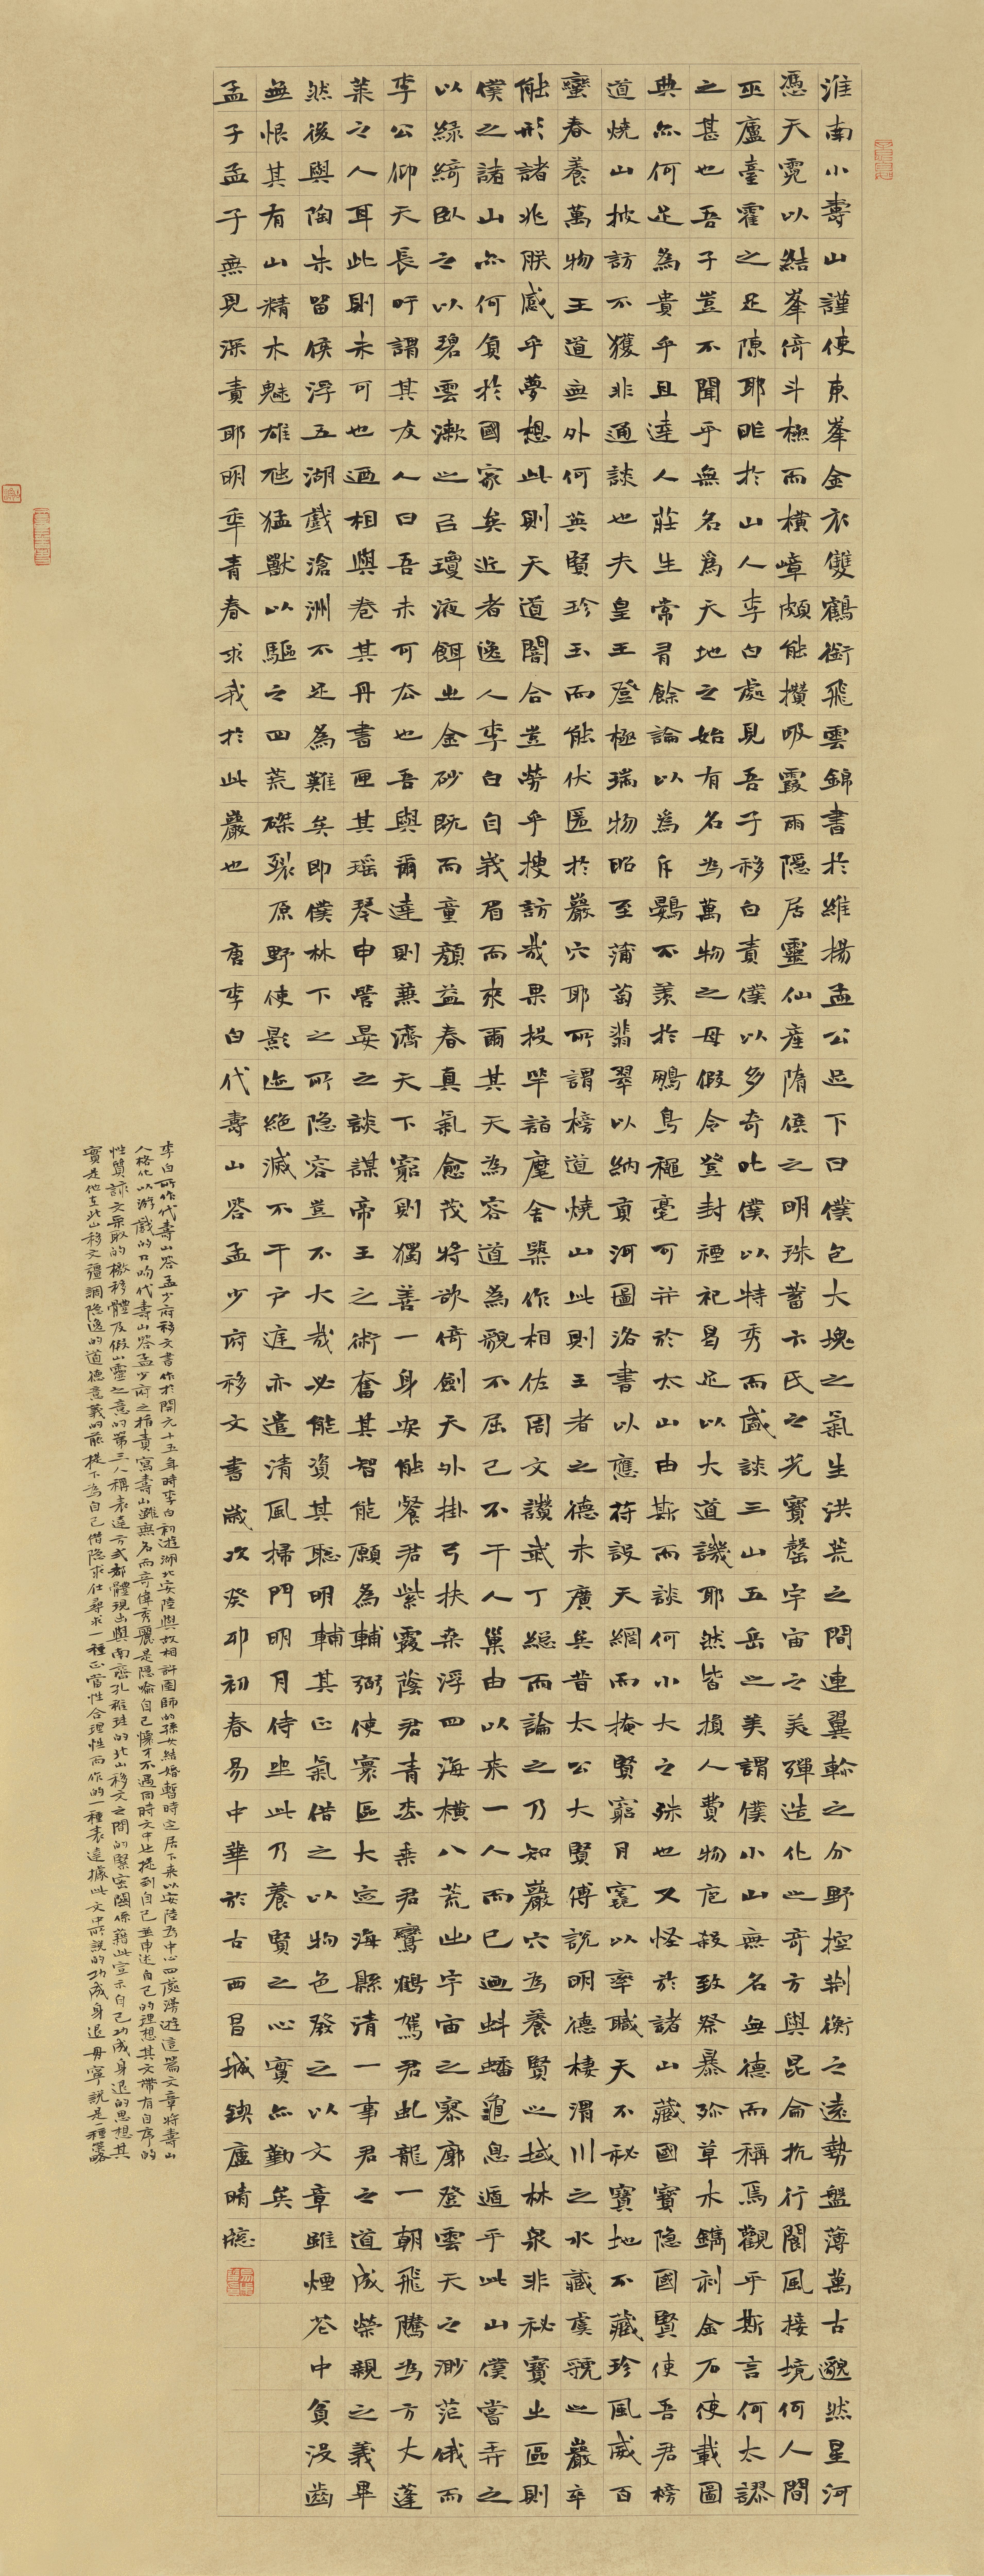 淮南小壽山謹使東峯金衣雙鶴銜飛雲錦書於維揚孟公足下曰僕包大塊之氣生洪荒之間連翼軫之分野控荊衡之遠勢盤薄萬古邈然星河
憑天霓以結峯倚斗極而橫嶂頗能攢吸霞雨隱居靈仙產隋侯之明珠蓄卞氏之光寶罄宇宙之美殫造化之奇方與昆侖抗行閬風接境何人間
巫廬臺霍之足陳耶昨於山人李白處見吾子移白責僕以多奇叱僕以特秀而盛談三山五岳之美謂僕小山無名無德而稱焉觀乎斯言何太謬
之甚也吾子豈不聞乎無名爲天地之始有名為萬物之母假令登封禋祀曷足以大道譏耶然皆損人費物庖殺致祭暴殄草木鐫刻金石使載圖
典亦何足為貴乎且達人莊生常有餘論以為斥鷃不羨於鵬鳥秋毫可并於太山由斯而談何小大之殊也又怪於諸山藏國寶隱國賢使吾君榜
道燒山披訪不獲非通談也夫皇王登極瑞物昭至蒲萄翡翠以納貢河圖洛書以應符設天網而掩賢窮月窟以率職天不秘寶地不藏珍風威百
蠻春養萬物王道無外何英賢珍玉而能伏匿於巖穴耶所謂榜道燒山此則王者之德未廣矣昔太公大賢傅說明德棲渭川之水藏虞虢之巖卒
能形諸兆朕感乎夢想此則天道闇合豈勞乎搜訪哉果投竿詣麾舍築作相佐周文讚武丁總而論之乃知巖穴為養賢之域林泉非秘寶之區則
僕之諸山亦何負於國家矣近者逸人李白自峩眉而來爾其天為容道為貌不屈己不干人巢由以來一人而已迺虯蟠龜息遁乎此山僕嘗弄之
以綠綺臥之以碧雲漱之以瓊液餌之金砂既而童顏益春真氣愈茂將欲倚劍天外掛弓扶桑浮四海橫八荒出宇宙之寥廓登雲天之渺茫俄而
李公仰天長吁謂其友人曰吾未可去也吾與爾達則兼濟天下窮則獨善一身安能餐君紫霞蔭君青松乘君鸞鶴駕君虯龍一朝飛騰為方丈蓬
萊之人耳此則未可也迺相與卷其丹書匣其瑤琴申管晏之談謀帝王之術奮其智能願為輔弼使寰區大定海縣清一事君之道成榮親之義畢
然後與陶朱留侯浮五湖戲滄洲不足為難矣即僕林下之所隱容豈不大哉必能資其聰明輔其正氣借之以物色發之以文章雖煙花中貧沒齒
無恨其有山精木魅雄虺猛獸以驅之四荒磔裂原野使影迹絕滅不干戶庭亦遣清風掃門明月侍坐此乃養賢之心實亦勤矣
孟子孟子無見深責耶明年青春求我於此巖也 唐李白代壽山答孟少府移文書歲次癸卯初春易中華於古西昌城鍥廬晴牕
李白所作代壽山答孟少府移文書作於開元十五年時李白初遊湖北安陸與故相許圉師的孫女結婚暫時定居下來以安陸為中心四處漫遊這篇文章將壽山
人格化以游戲的口吻代壽山答孟少府之指責寫壽山雖無名而奇偉秀麗是隱喻自己懷才不遇同時文中也提到自己並申述自己的理想其文帶有自序的
性質該文采取的檄移體及假山靈之意的第三人稱表達方式都體現出與南齊孔稚珪的北山移文之間的緊密關係藉此宣示自己功成身退的思想其
實是他在北山移文強調隱逸的道德意義的前提下為自己借隱求仕尋求一種正當性合理性而作的一種表達據此文中所說的功成身退毋寧說是一種策略